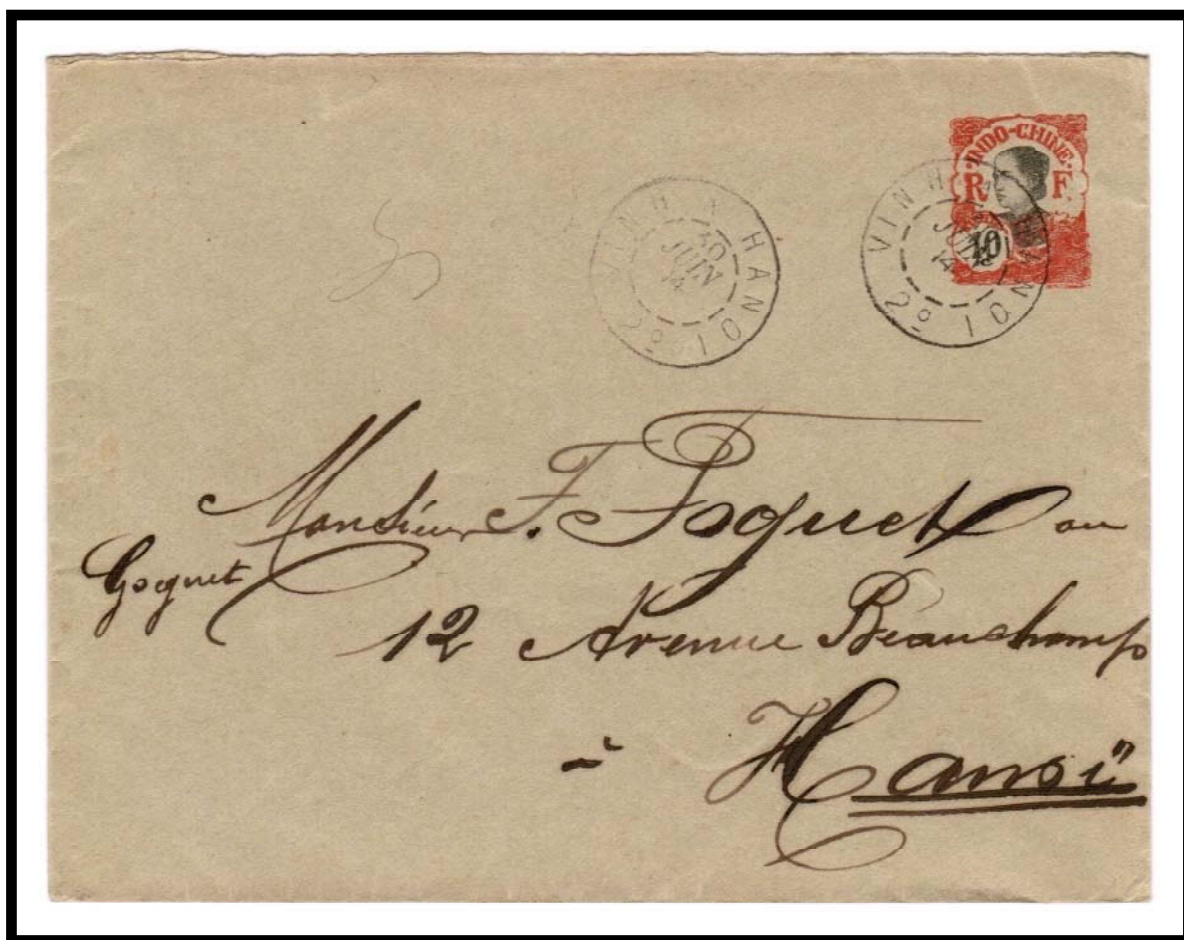 INDO-CHINE
R F
10
VINH A HANOI 2º
30 JUIN 14
VINH A HANOI 2º
JUIN 14
Monsieur F. Foquet ou
Goguet
12 Avenue Beauchamp
à Hanoï